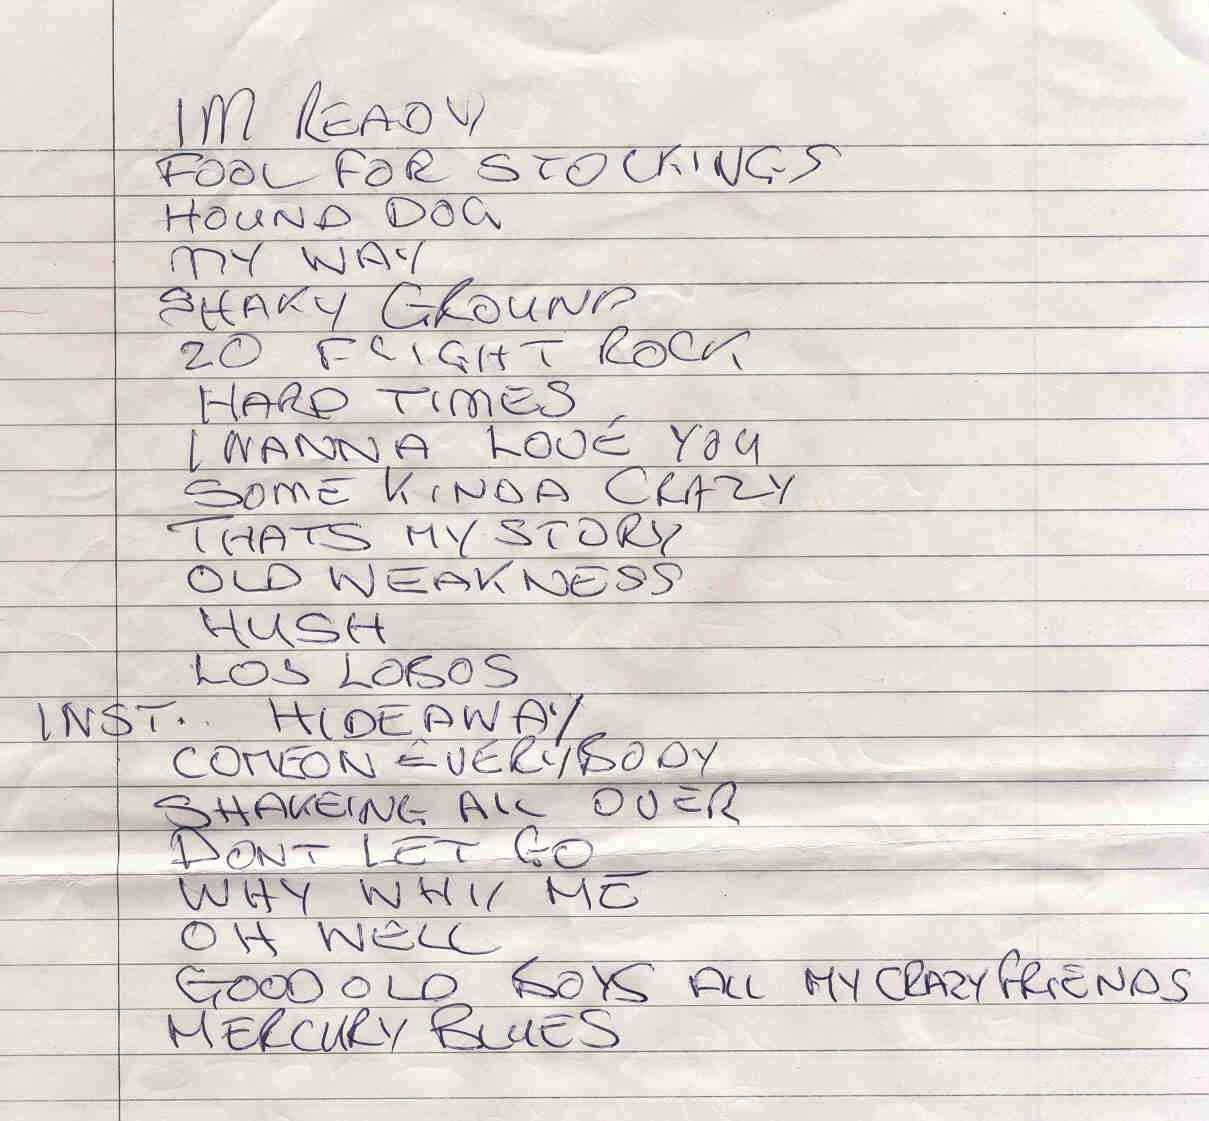 IM READY
FOOL FOR STOCKINGS
HOUND DOG
MY WAY
SHAKY GROUND
20 FLIGHT ROCK
HARD TIMES
I WANNA LOVE YOU
SOME KINDA CRAZY
THATS MY STORY
OLD WEAKNESS
HUSH
LOS LOBOS
INST... HIDEAWAY
COMEON EVERYBODY
SHAKEING ALL OVER
DONT LET GO
WHY WHY ME
OH WELL
GOOD OLD BOYS ALL MY CRAZY FRIENDS
MERCURY BLUES